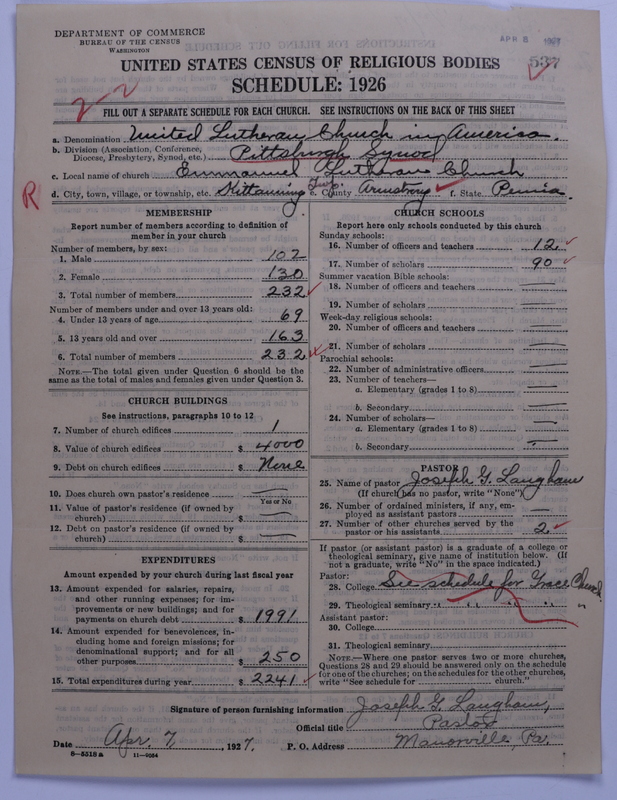 DEPARTMENT OF COMMERCE
BUREAU OF THE CENSUS
WASHINGTON
APR 8 1927
537
UNITED STATES CENSUS OF RELIGIOUS BODIES
SCHEDULE: 1926
2-2
FILL OUT A SEPARATE SCHEDULE FOR EACH CHURCH. SEE INSTRUCTIONS ON THE BACK OF THIS SHEET
a. Denomination United Lutheran Church in America.
b. Division (Association, Conference, Diocese, Presbytery, Synod, etc.) Pittsburgh Synod
c. Local name of church Emmanuel Lutheran Church
R
d. City, town, village, or township, etc. Kittanning Twp. e. County Armstrong f. State Penna.
MEMBERSHIP
Report number of members according to definition of
member in your church
Number of members, by sex:
1. Male 102
2. Female 130
3. Total number of members 232
Number of members under and over 13 years old:
4. Under 13 years of age 69
5. 13 years old and over 163
6. Total number of members 232
NOTE.—The total given under Question 6 should be
same as the total of males and females given under Question 3.
CHURCH BUILDINGS
See instructions, paragraphs 10 to 12
7. Number of church edifices 1
8. Value of church edifices $ 4000
9. Debt on church edifices $ None
10. Does church own pastor's residence —
Yes or No
11. Value of pastor's residence (if owned by
church) $ —
12. Debt on pastor's residence (if owned by
church) $ —
EXPENDITURES
Amount expended by your church during last fiscal year
13. Amount expended for salaries, repairs,
and other running expenses; for im-
provements or new buildings; and for
payments on church debt $ 1991
14. Amount expended for benevolences, in-
cluding home and foreign missions; for
denominational support; and for all
other purposes $ 250
15. Total expenditures during year $ 2241
CHURCH SCHOOLS
Report here only schools conducted by this church
Sunday schools:
16. Number of officers and teachers 12
17. Number of scholars 90
Summer vacation Bible schools:
18. Number of officers and teachers —
19. Number of scholars —
Week-day religious schools:
20. Number of officers and teachers —
21. Number of scholars —
Parochial schools:
22. Number of administrative officers —
23. Number of teachers—
a. Elementary (grades 1 to 8) —
b. Secondary —
24. Number of scholars—
a. Elementary (grades 1 to 8) —
b. Secondary —
PASTOR
25. Name of pastor Joseph G. Langham
(If church has no pastor, write "None")
26. Number of ordained ministers, if any, em-
ployed as assistant pastors —
27. Number of other churches served by the
pastor or his assistants 2
If pastor (or assistant pastor) is a graduate of a college or
theological seminary, give name of institution below. (If
not a graduate, write "No" in the space indicated.)
Pastor:
28. College See schedule for Grace Church.
29. Theological seminary " " " " "
Assistant pastor:
30. College
31. Theological seminary
NOTE.—Where one pastor serves two or more churches,
Questions 28 and 29 should be answered only on the schedule
for one of the churches; on the schedules for the other churches,
write "See schedule for ________ church."
Signature of person furnishing information Joseph G. Langham,
Official title Pastor
Date Apr. 7, 1927. P. O. Address Manorville, Pa.
8-5518a 11-9064